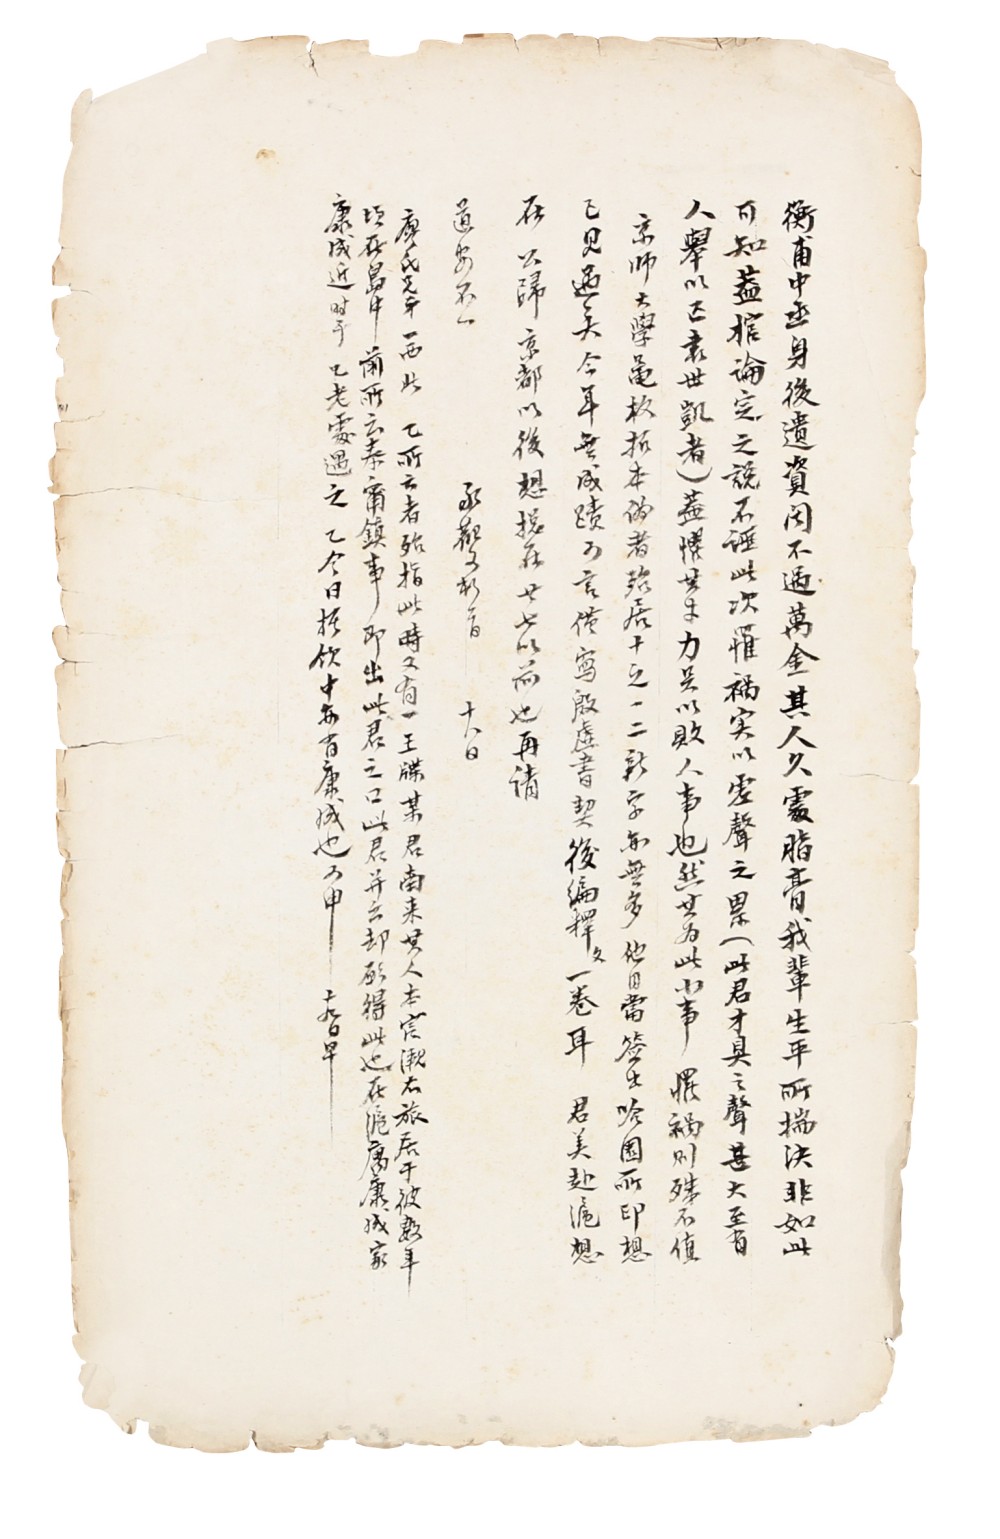 衡甫中丞身後遺資聞不過萬金其人久處脂膏我輩生平所揣決非如此
可知蓋棺論定之說不誣此次罹禍实以虛聲之累（此君才具之聲甚大至有
人舉以匹袁世凱者）蓋懼其才力足以敗人事也然其为此小事罹禍則殊不值
京師大學龜板拓本偽者殆居十之一二新字亦無多他日當簽出哈園所印想
已見過矣今年無成蹟可言僅寫殷虛書契後編釋文一卷耳 君美赴滬想
在公歸京都以後想搃在廿七以前也再請
道安不一
永觀又頓首 十八日
康氏兄弟一西北 乙所云者殆指此時又有一王牒某君南来其人本官潮右旅居于彼數年
頃在島中前所云泰甯鎮事即出此君之口此君并云却願得此也在滬寓康成家
康成近时于乙老處遇之 乙今日招飲中亦有康成也又申 十九日早